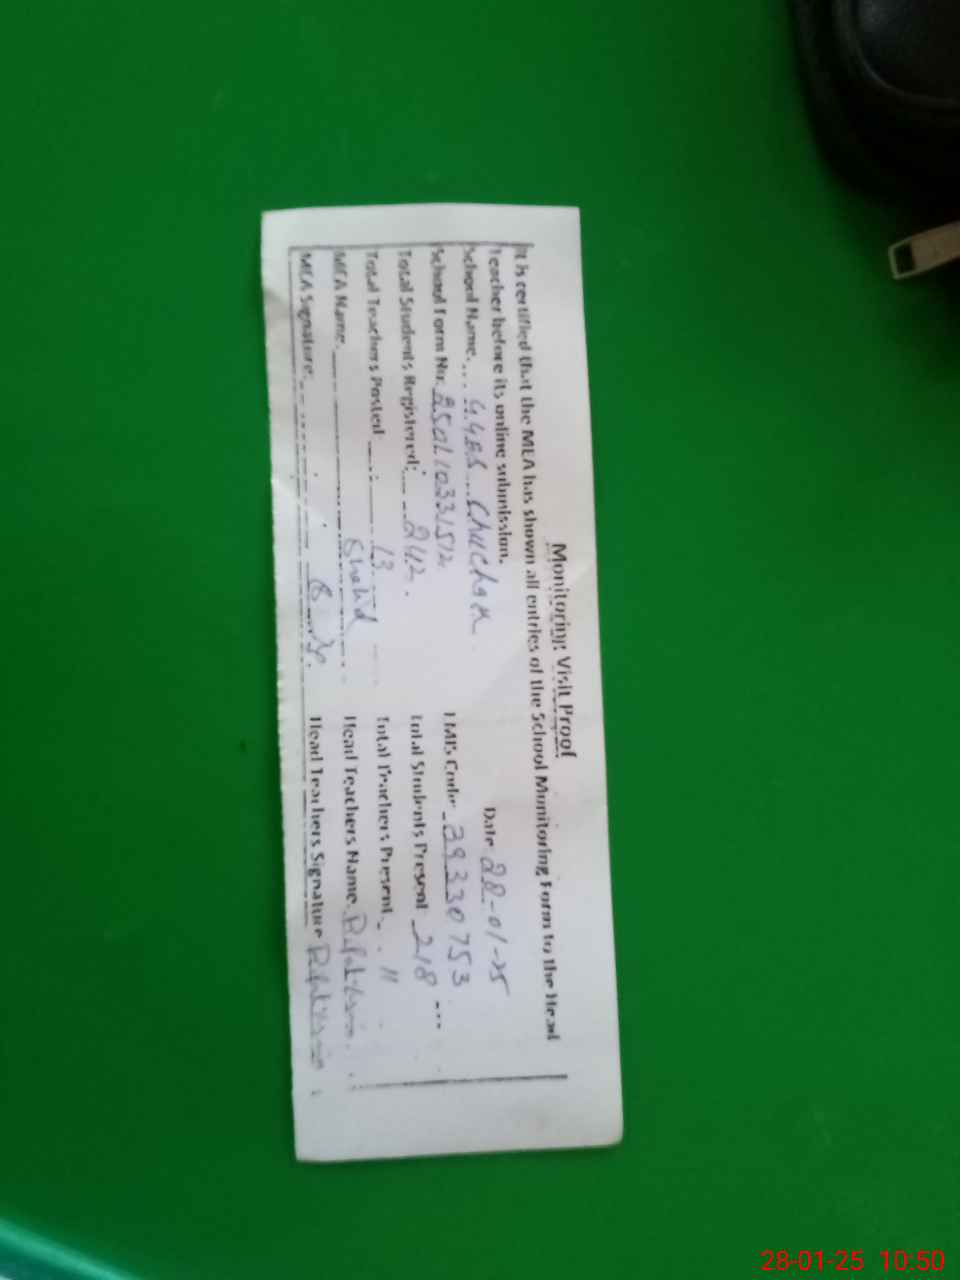 Monitoring Visit Proof
It is certified that the MEA has shown all entries of the School Monitoring Form to the Head
Teacher before its online submission.
Date 28-01-25
School Name
School Form No. 250110331512
EMIS Code 39330753
Total Students Registered: 242
Total Students Present 218
Total Teachers Posted 13
Total Teachers Present 11
MEA Name. Shahid
Head Teachers Name.
MEA Signature:
Head Teachers Signature
28-01-25 10:50